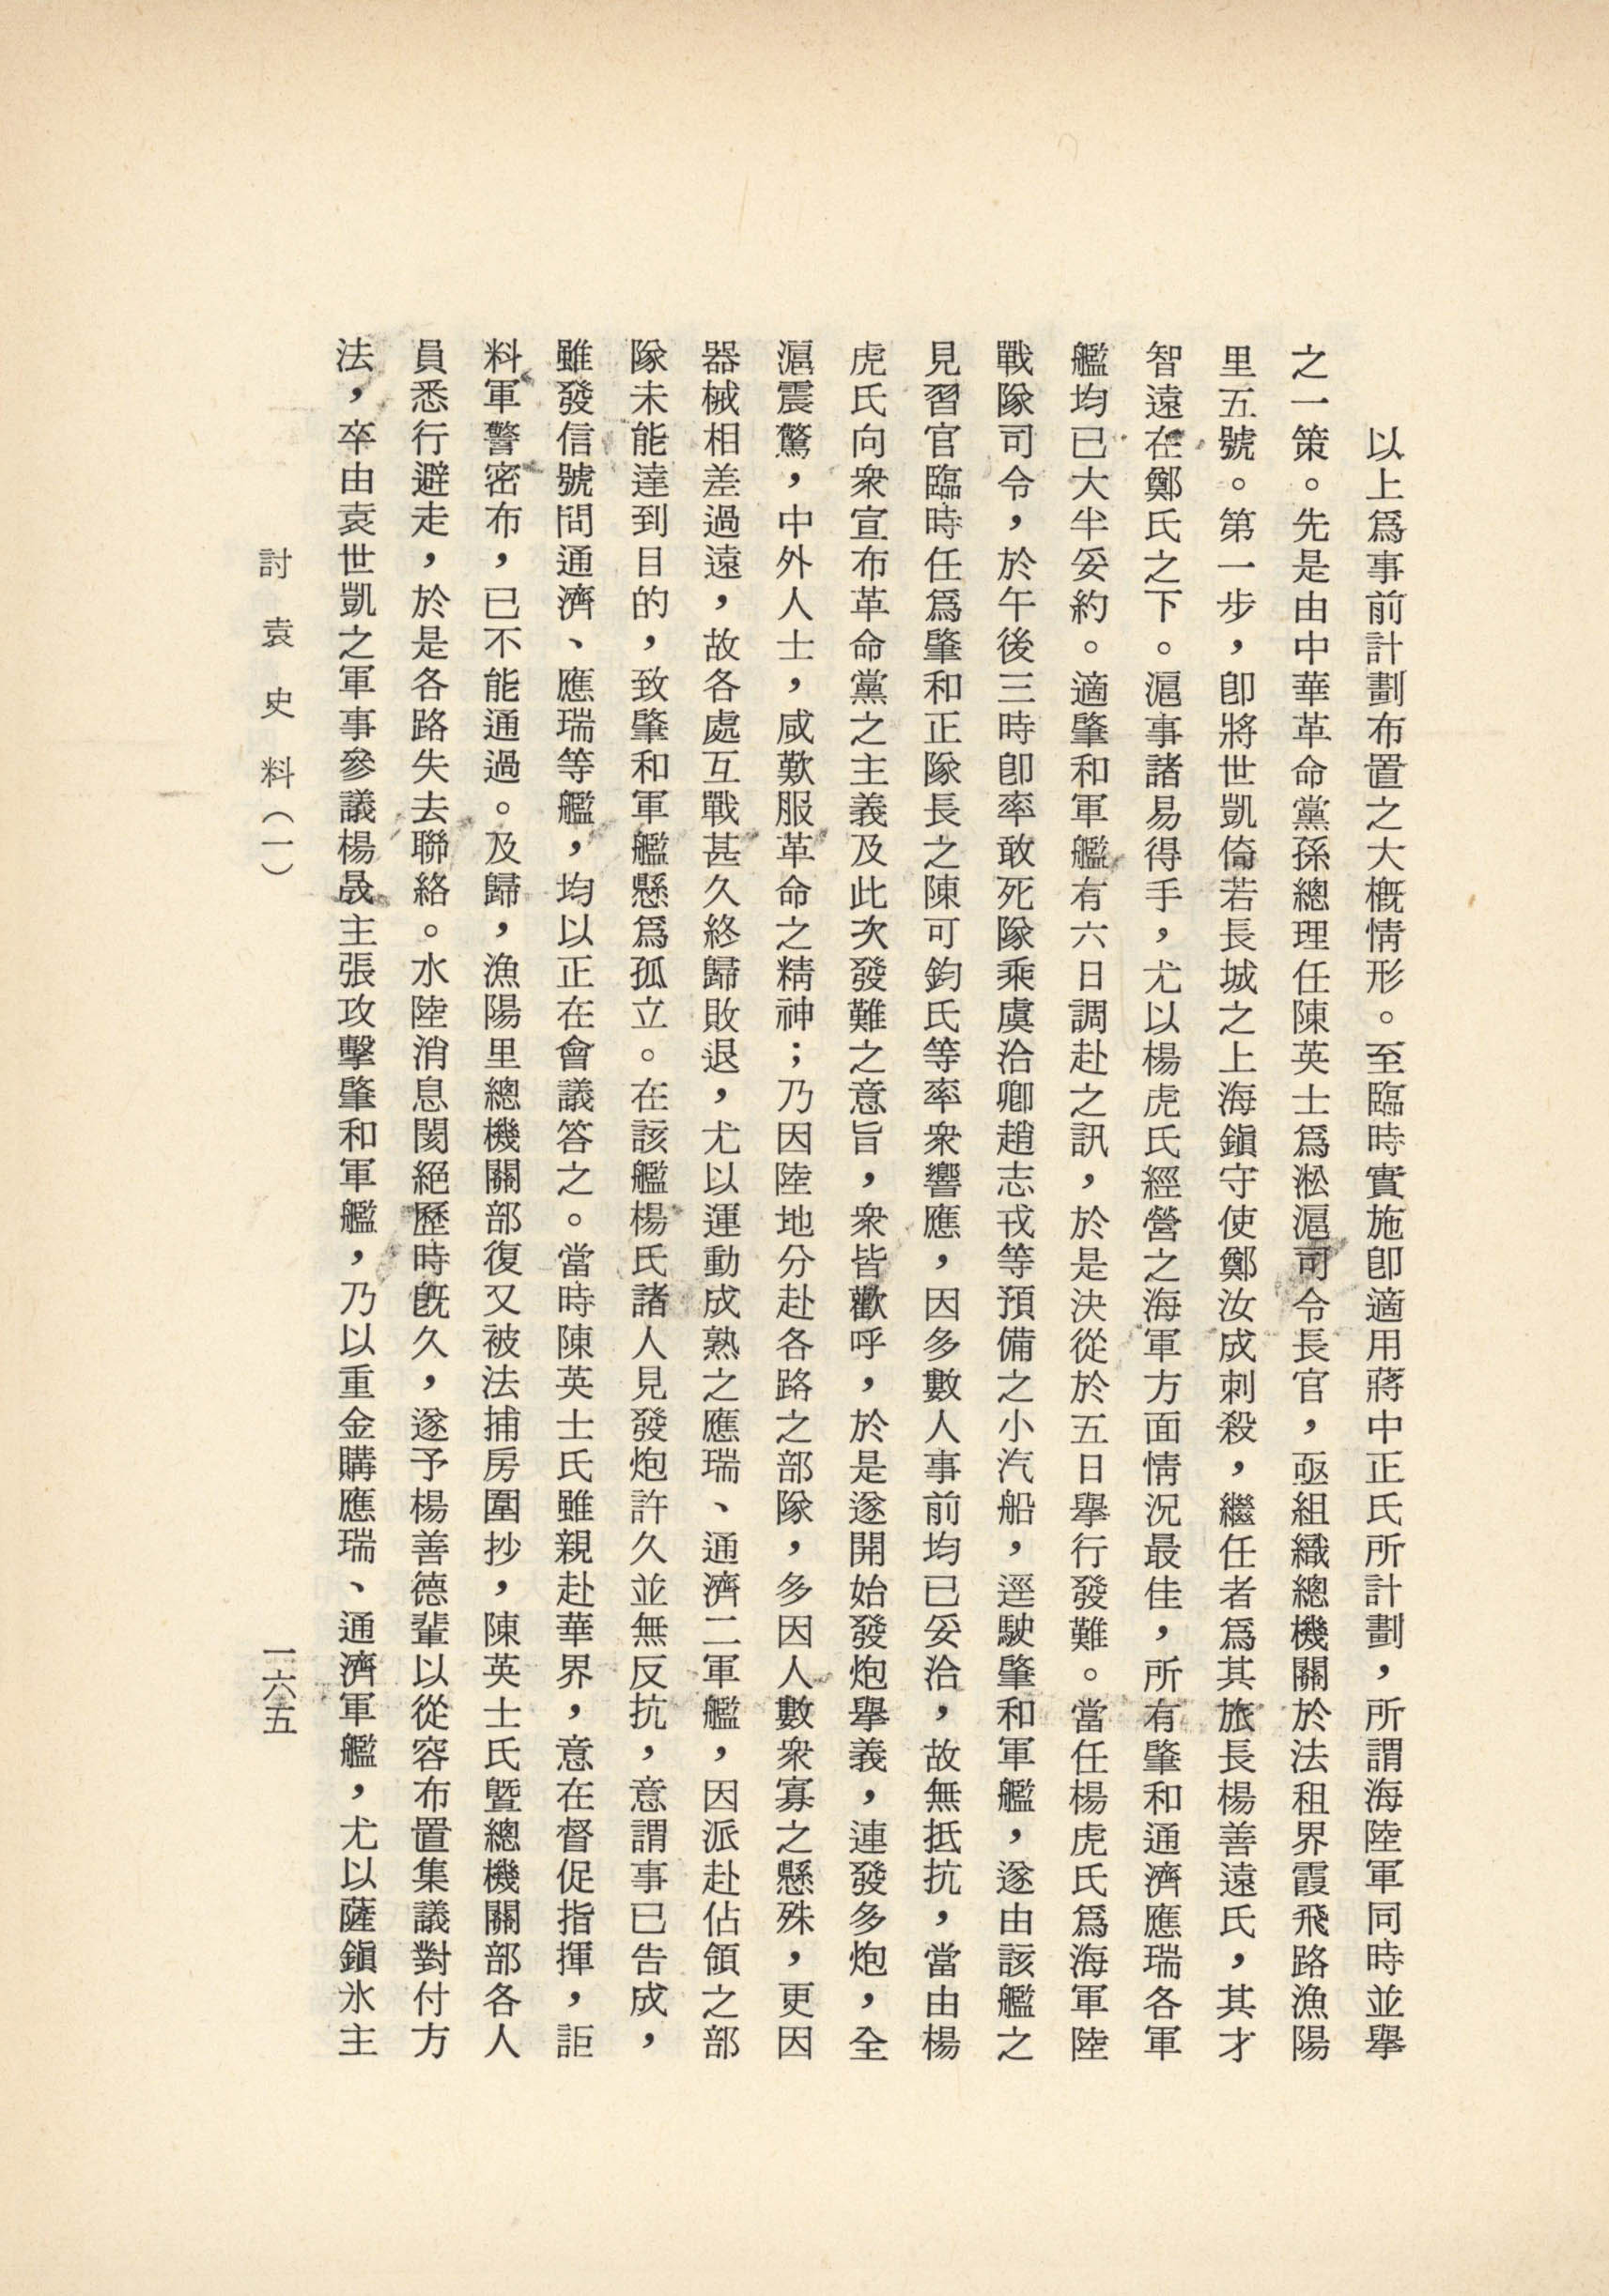 以上爲事前計劃布置之大槪情形。至臨時實施卽適用蔣中正氏所計劃，所謂海陸軍同時並擧
之一策。先是由中華革命黨孫總理任陳英士爲淞滬司令長官，亟組織總機關於法租界霞飛路漁陽
里五號。第一步，卽將世凱倚若長城之上海鎭守使鄭汝成刺殺，繼任者爲其旅長楊善遠氏，其才
智遠在鄭氏之下。滬事諸易得手，尤以楊虎氏經營之海軍方面情況最佳，所有肇和通濟應瑞各軍
艦均已大半妥約。適肇和軍艦有六日調赴之訊，於是決從於五日擧行發難。當任楊虎氏爲海軍陸
戰隊司令，於午後三時卽率敢死隊乘虞洽卿趙志戎等預備之小汽船，逕駛肇和軍艦，遂由該艦之
見習官臨時任爲肇和正隊長之陳可鈞氏等率衆響應，因多數人事前均已妥洽，故無抵抗，當由楊
虎氏向衆宣布革命黨之主義及此次發難之意旨，衆皆歡呼，於是遂開始發炮擧義，連發多炮，全
滬震驚，中外人士，咸歎服革命之精神；乃因陸地分赴各路之部隊，多因人數衆寡之懸殊，更因
器械相差過遠，故各處互戰甚久終歸敗退，尤以運動成熟之應瑞、通濟二軍艦，因派赴佔領之部
隊未能達到目的，致肇和軍艦懸爲孤立。在該艦楊氏諸人見發炮許久並無反抗，意謂事已告成，
雖發信號問通濟、應瑞等艦，均以正在會議答之。當時陳英士氏雖親赴華界，意在督促指揮，詎
料軍警密布，已不能通過。及歸，漁陽里總機關部復又被法捕房圍抄，陳英士氏曁總機關部各人
員悉行避走，於是各路失去聯絡。水陸消息閡絕歷時旣久，遂予楊善德輩以從容布置集議對付方
法，卒由袁世凱之軍事參議楊晟主張攻擊肇和軍艦，乃以重金購應瑞、通濟軍艦，尤以薩鎭氷主
討袁史料（一）
一六五